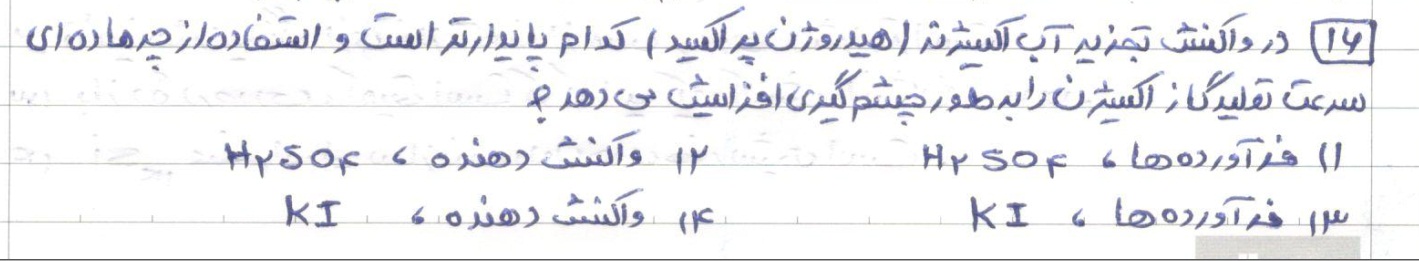 ۱۶) در واکنش تجزیه آب اکسیژنه (هیدروژن پر اکسید) کدام پایدارتر است و استفاده از چه ماده ای
سرعت تولید گاز اکسیژن را به طور چشم گیری افزایش می دهد؟
۱) فرآورده ها ، H۲SO۴ ۲) واکنش دهنده ، H۲SO۴
۳) فرآورده ها ، KI ۴) واکنش دهنده ، KI